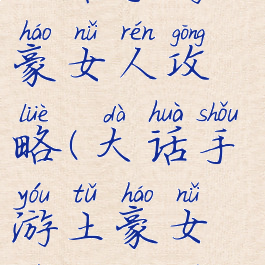 háo nǚ rén gōng
豪女人攻
lüè dà huà shǒu
略(大话手
yóu tǔ háo nǚ
游土豪女